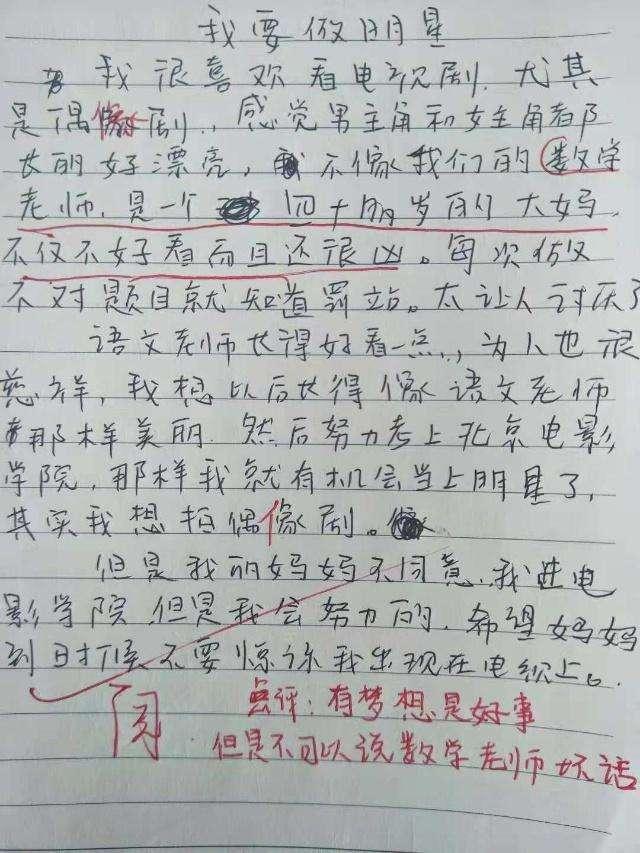 我要做明星
我很喜欢看电视剧.尤其
是偶像剧.,感觉男主角和女主角都
长的好漂亮,不像我们的数学
老师.是一个四十的岁的大妈,
不仅不好看而且还很凶。每次做
不对题目就知道罚站。太让人讨厌了
语文老师长得好看一点.,为人也很
慈祥,我想以后长得像语文老师
那样美丽.然后努力考上北京电影
学院,那样我就有机会当上明星了,
其实我想拍偶像剧。
但是我的妈妈不同意.我进电
影学院.但是我会努力的.希望妈妈
到时候不要惊讶我出现在电视上。
阅
点评:有梦想是好事
但是不可以说数学老师坏话